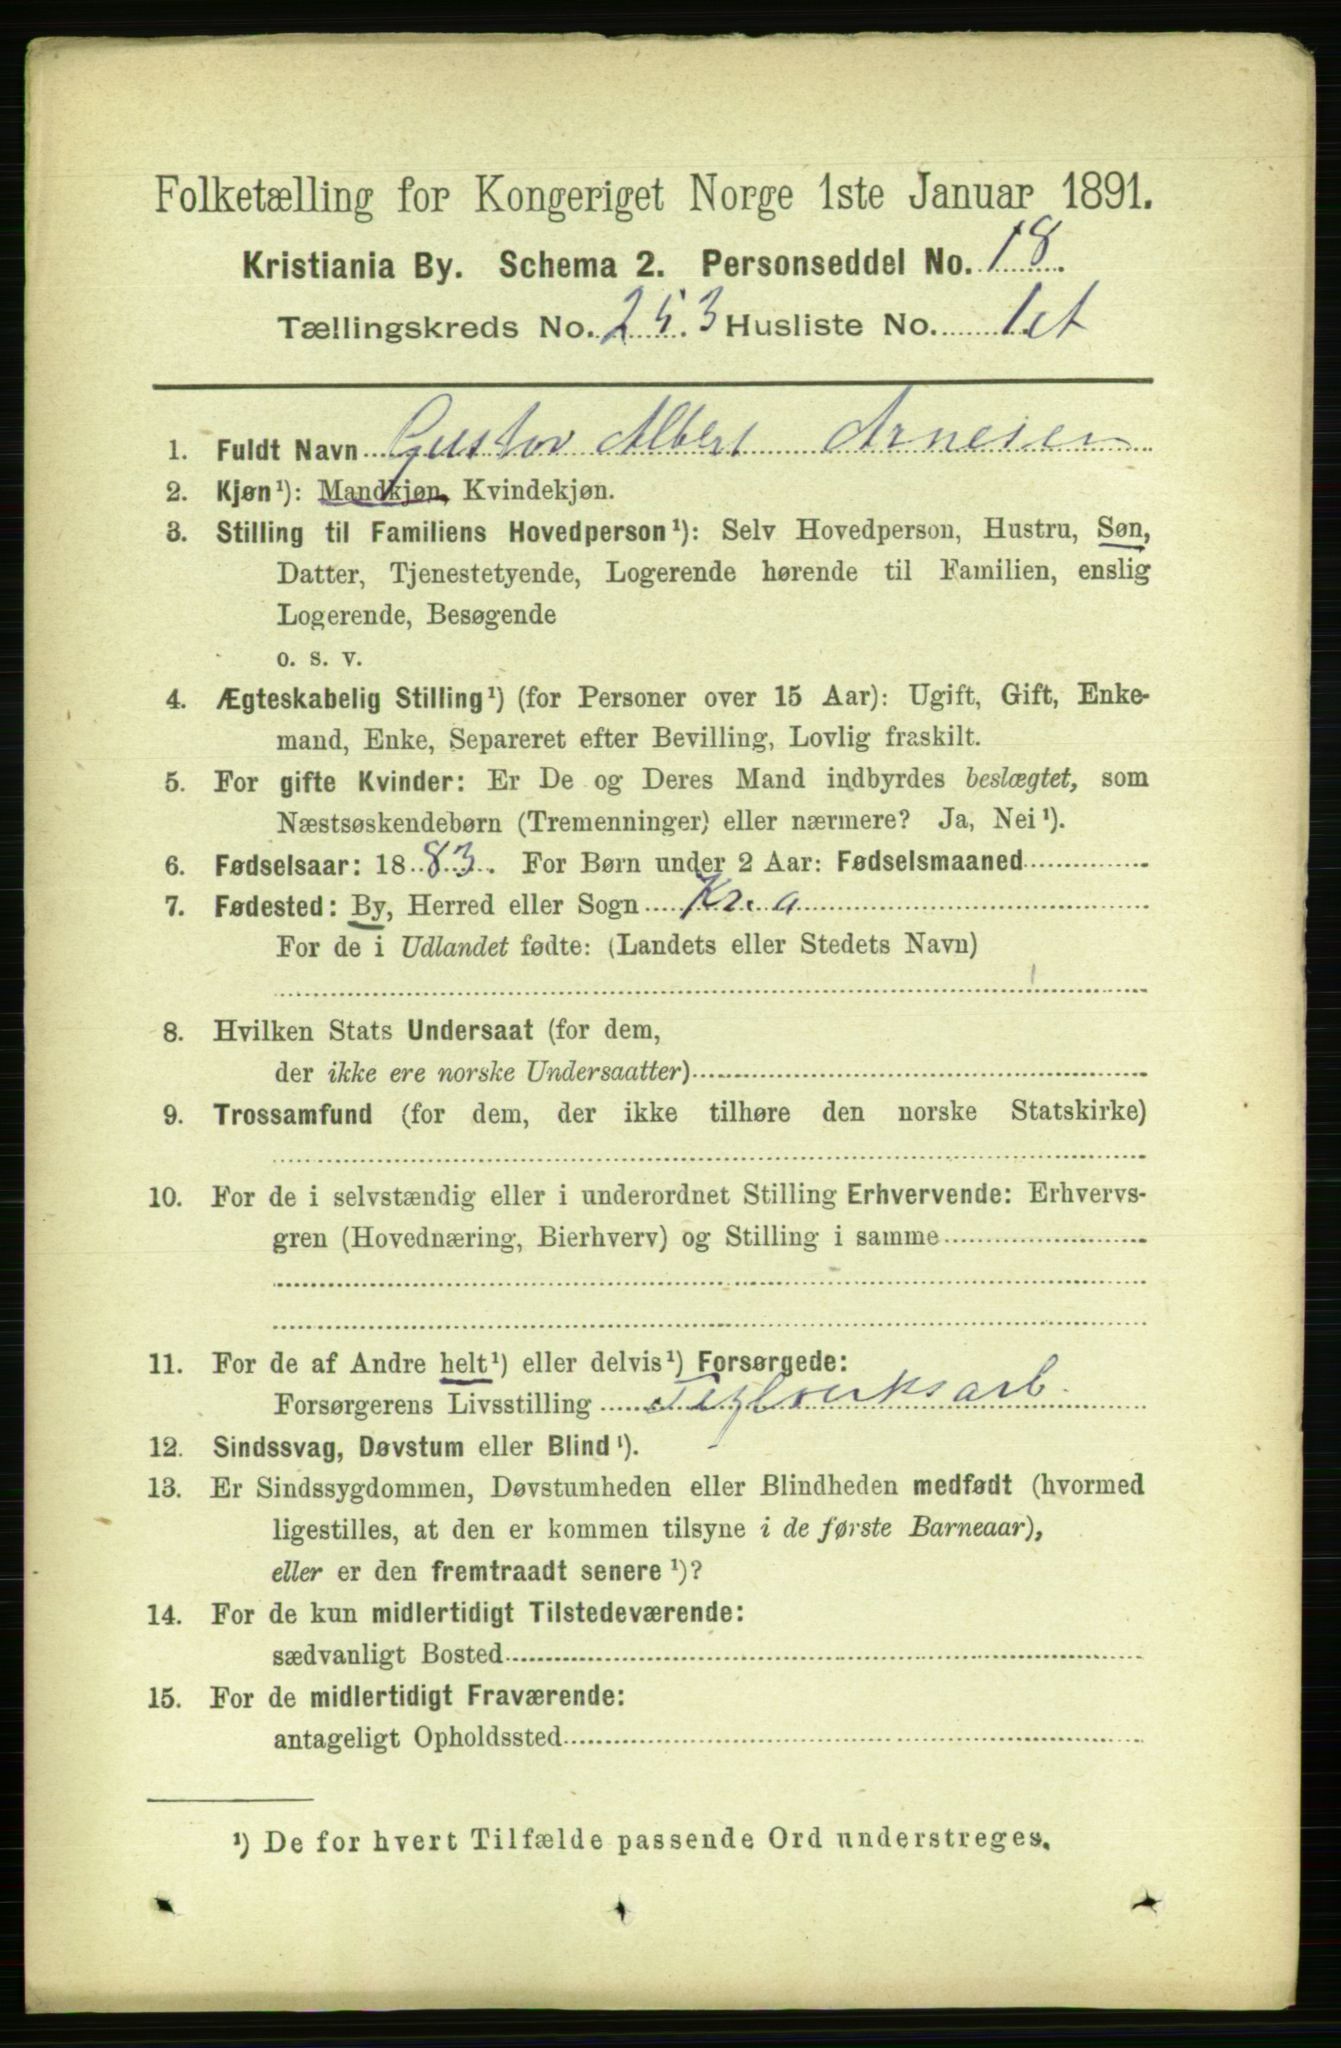 Folketælling for Kongeriget Norge 1ste Januar 1891.
Kristiania By. Schema 2. Personseddel No. 18
Tællingskreds No. 253 Husliste No. 1et
1. Fuldt Navn Gustav Albert Arnesen
2. Kjøn¹): Mandkjøn, Kvindekjøn.
3. Stilling til Familiens Hovedperson¹): Selv Hovedperson, Hustru, Søn,
Datter, Tjenestetyende, Logerende hørende til Familien, enslig
Logerende, Besøgende
o. s. v.
4. Ægteskabelig Stilling¹) (for Personer over 15 Aar): Ugift, Gift, Enke-
mand, Enke, Separeret efter Bevilling, Lovlig fraskilt.
5. For gifte Kvinder: Er De og Deres Mand indbyrdes beslægtet, som
Næstsøskendebørn (Tremenninger) eller nærmere? Ja, Nei¹).
6. Fødselsaar: 1883. For Børn under 2 Aar: Fødselsmaaned
7. Fødested: By, Herred eller Sogn Kr.a
For de i Udlandet fødte: (Landets eller Stedets Navn)
8. Hvilken Stats Undersaat (for dem,
der ikke ere norske Undersaatter)
9. Trossamfund (for dem, der ikke tilhøre den norske Statskirke)
10. For de i selvstændig eller i underordnet Stilling Erhvervende: Erhvervs-
gren (Hovednæring, Bierhverv) og Stilling i samme
11. For de af Andre helt¹) eller delvis¹) Forsørgede:
Forsørgerens Livsstilling Teglverksarb.
12. Sindssvag, Døvstum eller Blind¹).
13. Er Sindssygdommen, Døvstumheden eller Blindheden medfødt (hvormed
ligestilles, at den er kommen tilsyne i de første Barneaar),
eller er den fremtraadt senere¹)?
14. For de kun midlertidigt Tilstedeværende:
sædvanligt Bosted
15. For de midlertidigt Fraværende:
antageligt Opholdssted
¹) De for hvert Tilfælde passende Ord understreges.